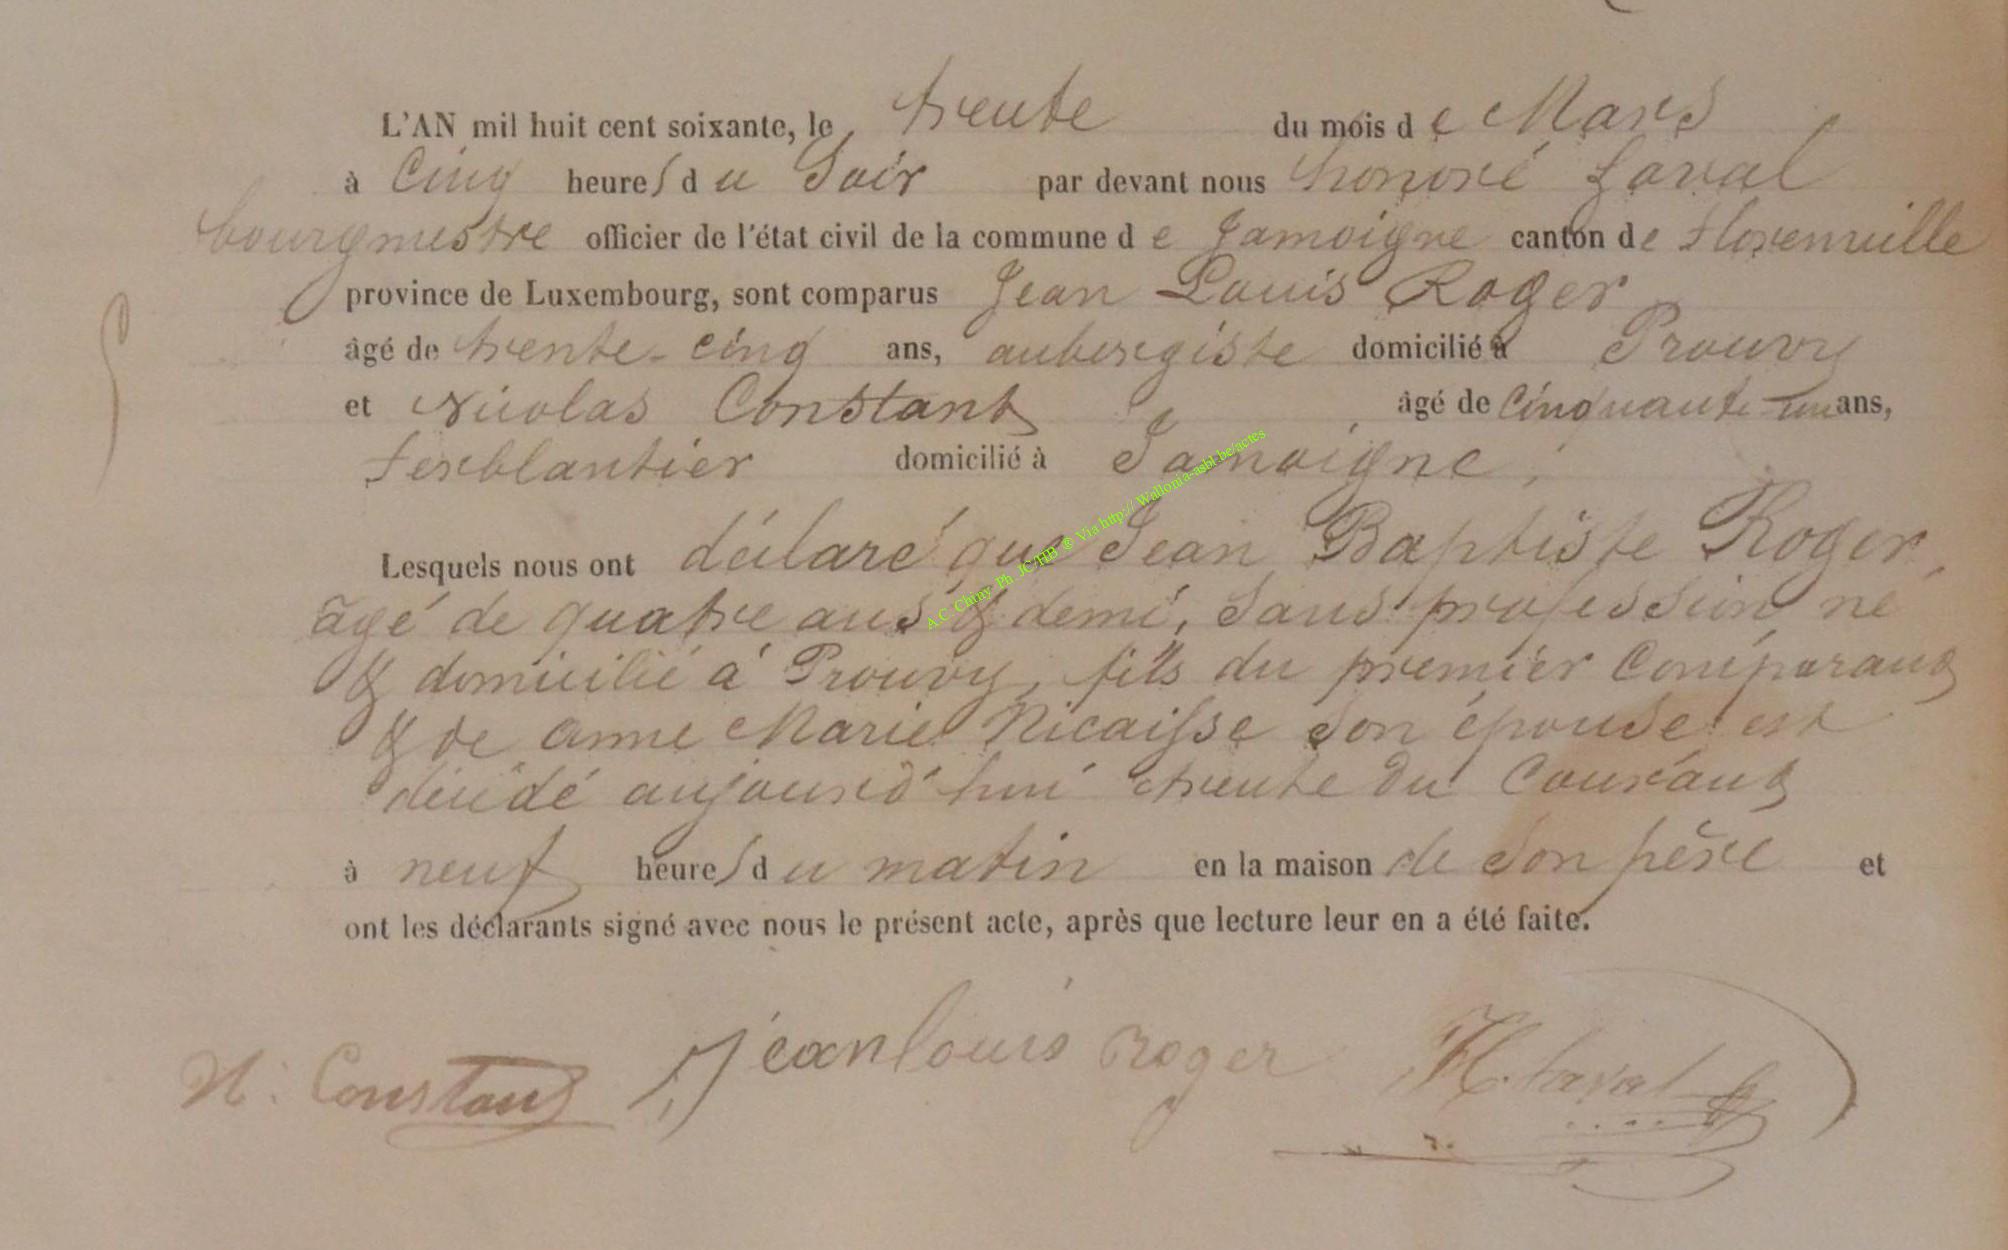 L'AN mil huit cent soixante, le trente du mois de Mars
à Cinq heures du Soir par devant nous honoré Laval
bourgmestre officier de l'état civil de la commune de Jamoigne canton de Florenville
province de Luxembourg, sont comparus Jean Louis Roger
âgé de trente-cinq ans, aubergiste domicilié à Prouvy
et Nicolas Constant âgé de Cinquante-un ans,
ferblantier domicilié à Jamoigne,
Lesquels nous ont déclaré que Jean Baptiste Roger,
âgé de quatre ans & demi, sans profession né
& domicilié à Prouvy, fils du premier Comparant
& de anne Marie Nicaisse son épouse est
décédé aujourd'hui trente du Courant
à neuf heures du matin en la maison de son père et
ont les déclarants signé avec nous le présent acte, après que lecture leur en a été faite.
N. Constant jean louis Roger H. Laval
A.C. Chiny Ph_JC/HB ® Via http:// Wallonia-asbl.be/actes